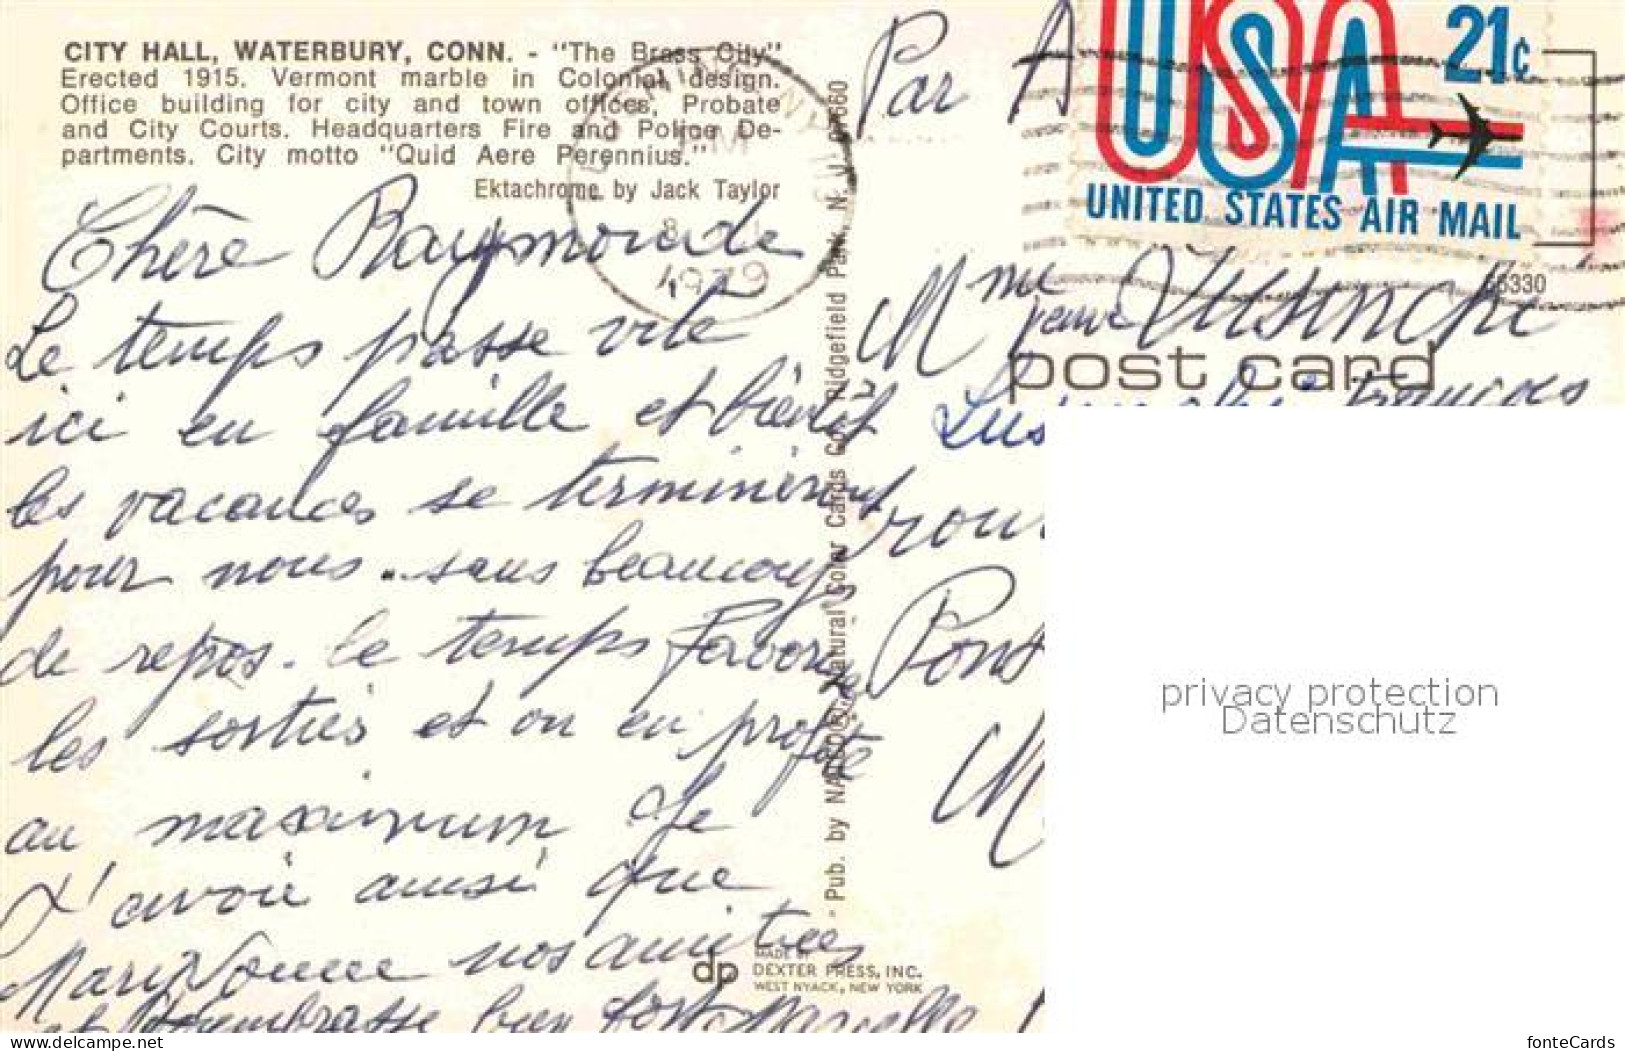 CITY HALL, WATERBURY, CONN. - "The Brass City"
Erected 1915. Vermont marble in Colonial design.
Office building for city and town offices, Probate
and City Courts. Headquarters Fire and Police De-
partments. City motto "Quid Aere Perennius."
Ektachrome by Jack Taylor
Chère Raymonde
Le temps passe vite
ici en famille et bientôt
les vacances se termineront
pour nous. sans beaucoup
de repos. le temps favorise
les sorties et on en profite
au maximum. Je
t'envoie ainsi que
nos amitiés
et t'embrasse bien fort Marcelle
Pub. by Natural Color Cards Co., Ridgefield Park, N. J. 07660
dp
MADE BY
DEXTER PRESS, INC.
WEST NYACK, NEW YORK
1979
Par A
USA 21c
UNITED STATES AIR MAIL
330
post card
Mme
Pont
privacy protection
Datenschutz
delcampe.net
fonteCards